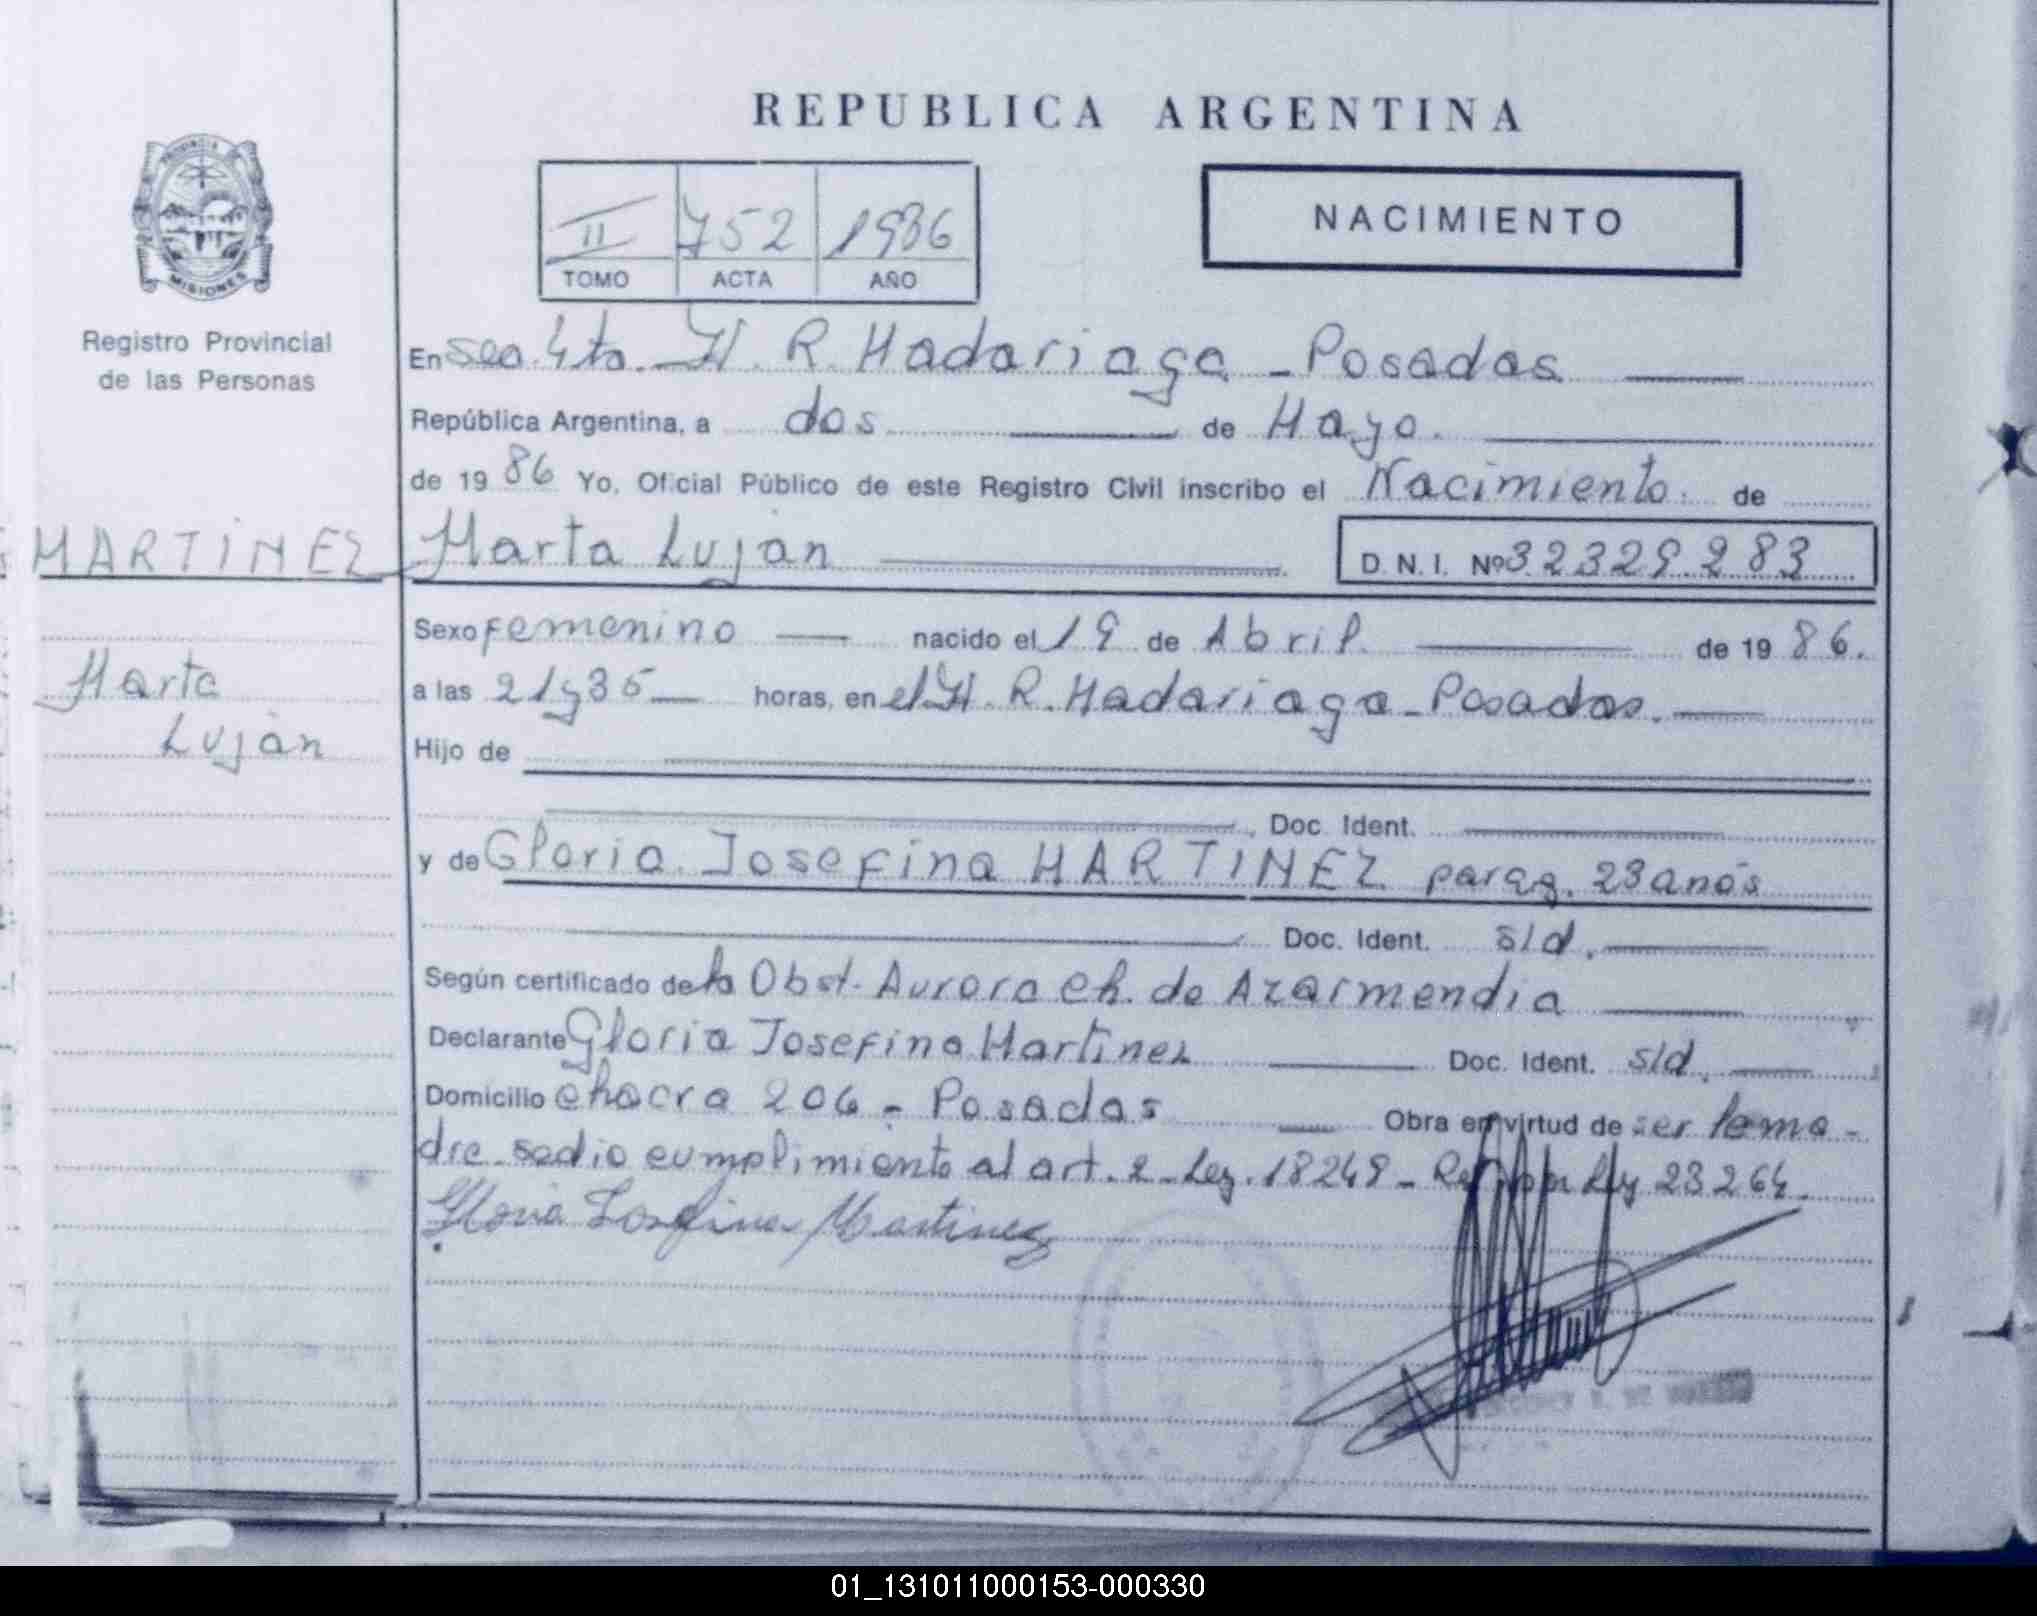 REPUBLICA ARGENTINA
PROVINCIA
MISIONES
II 752 1986
TOMO ACTA AÑO
NACIMIENTO
Registro Provincial
de las Personas
En Sec. 4ta. H. R. Madariaga - Posadas
República Argentina, a dos de Mayo.
de 19 86 Yo, Oficial Público de este Registro Civil inscribo el Nacimiento. de
MARTINEZ Marta Luján D.N.I. Nº 32.329.283
Sexo Femenino nacido el 19 de Abril. de 19 86.
Marta
Luján
a las 21 y 35 horas, en el H. R. Madariaga - Posadas.
Hijo de
Doc. Ident.
y de Gloria Josefina MARTINEZ parag. 23 años
Doc. Ident. s/d.
Según certificado de la Obst. Aurora Ch. de Azarmendia
Declarante Gloria Josefina Martinez Doc. Ident. s/d.
Domicilio Chacra 206 - Posadas Obra en virtud de ser la ma-
dre. se dio cumplimiento al art. 2 - Ley. 18248 - Ley 23264.
Gloria Josefina Martinez
01_131011000153-000330